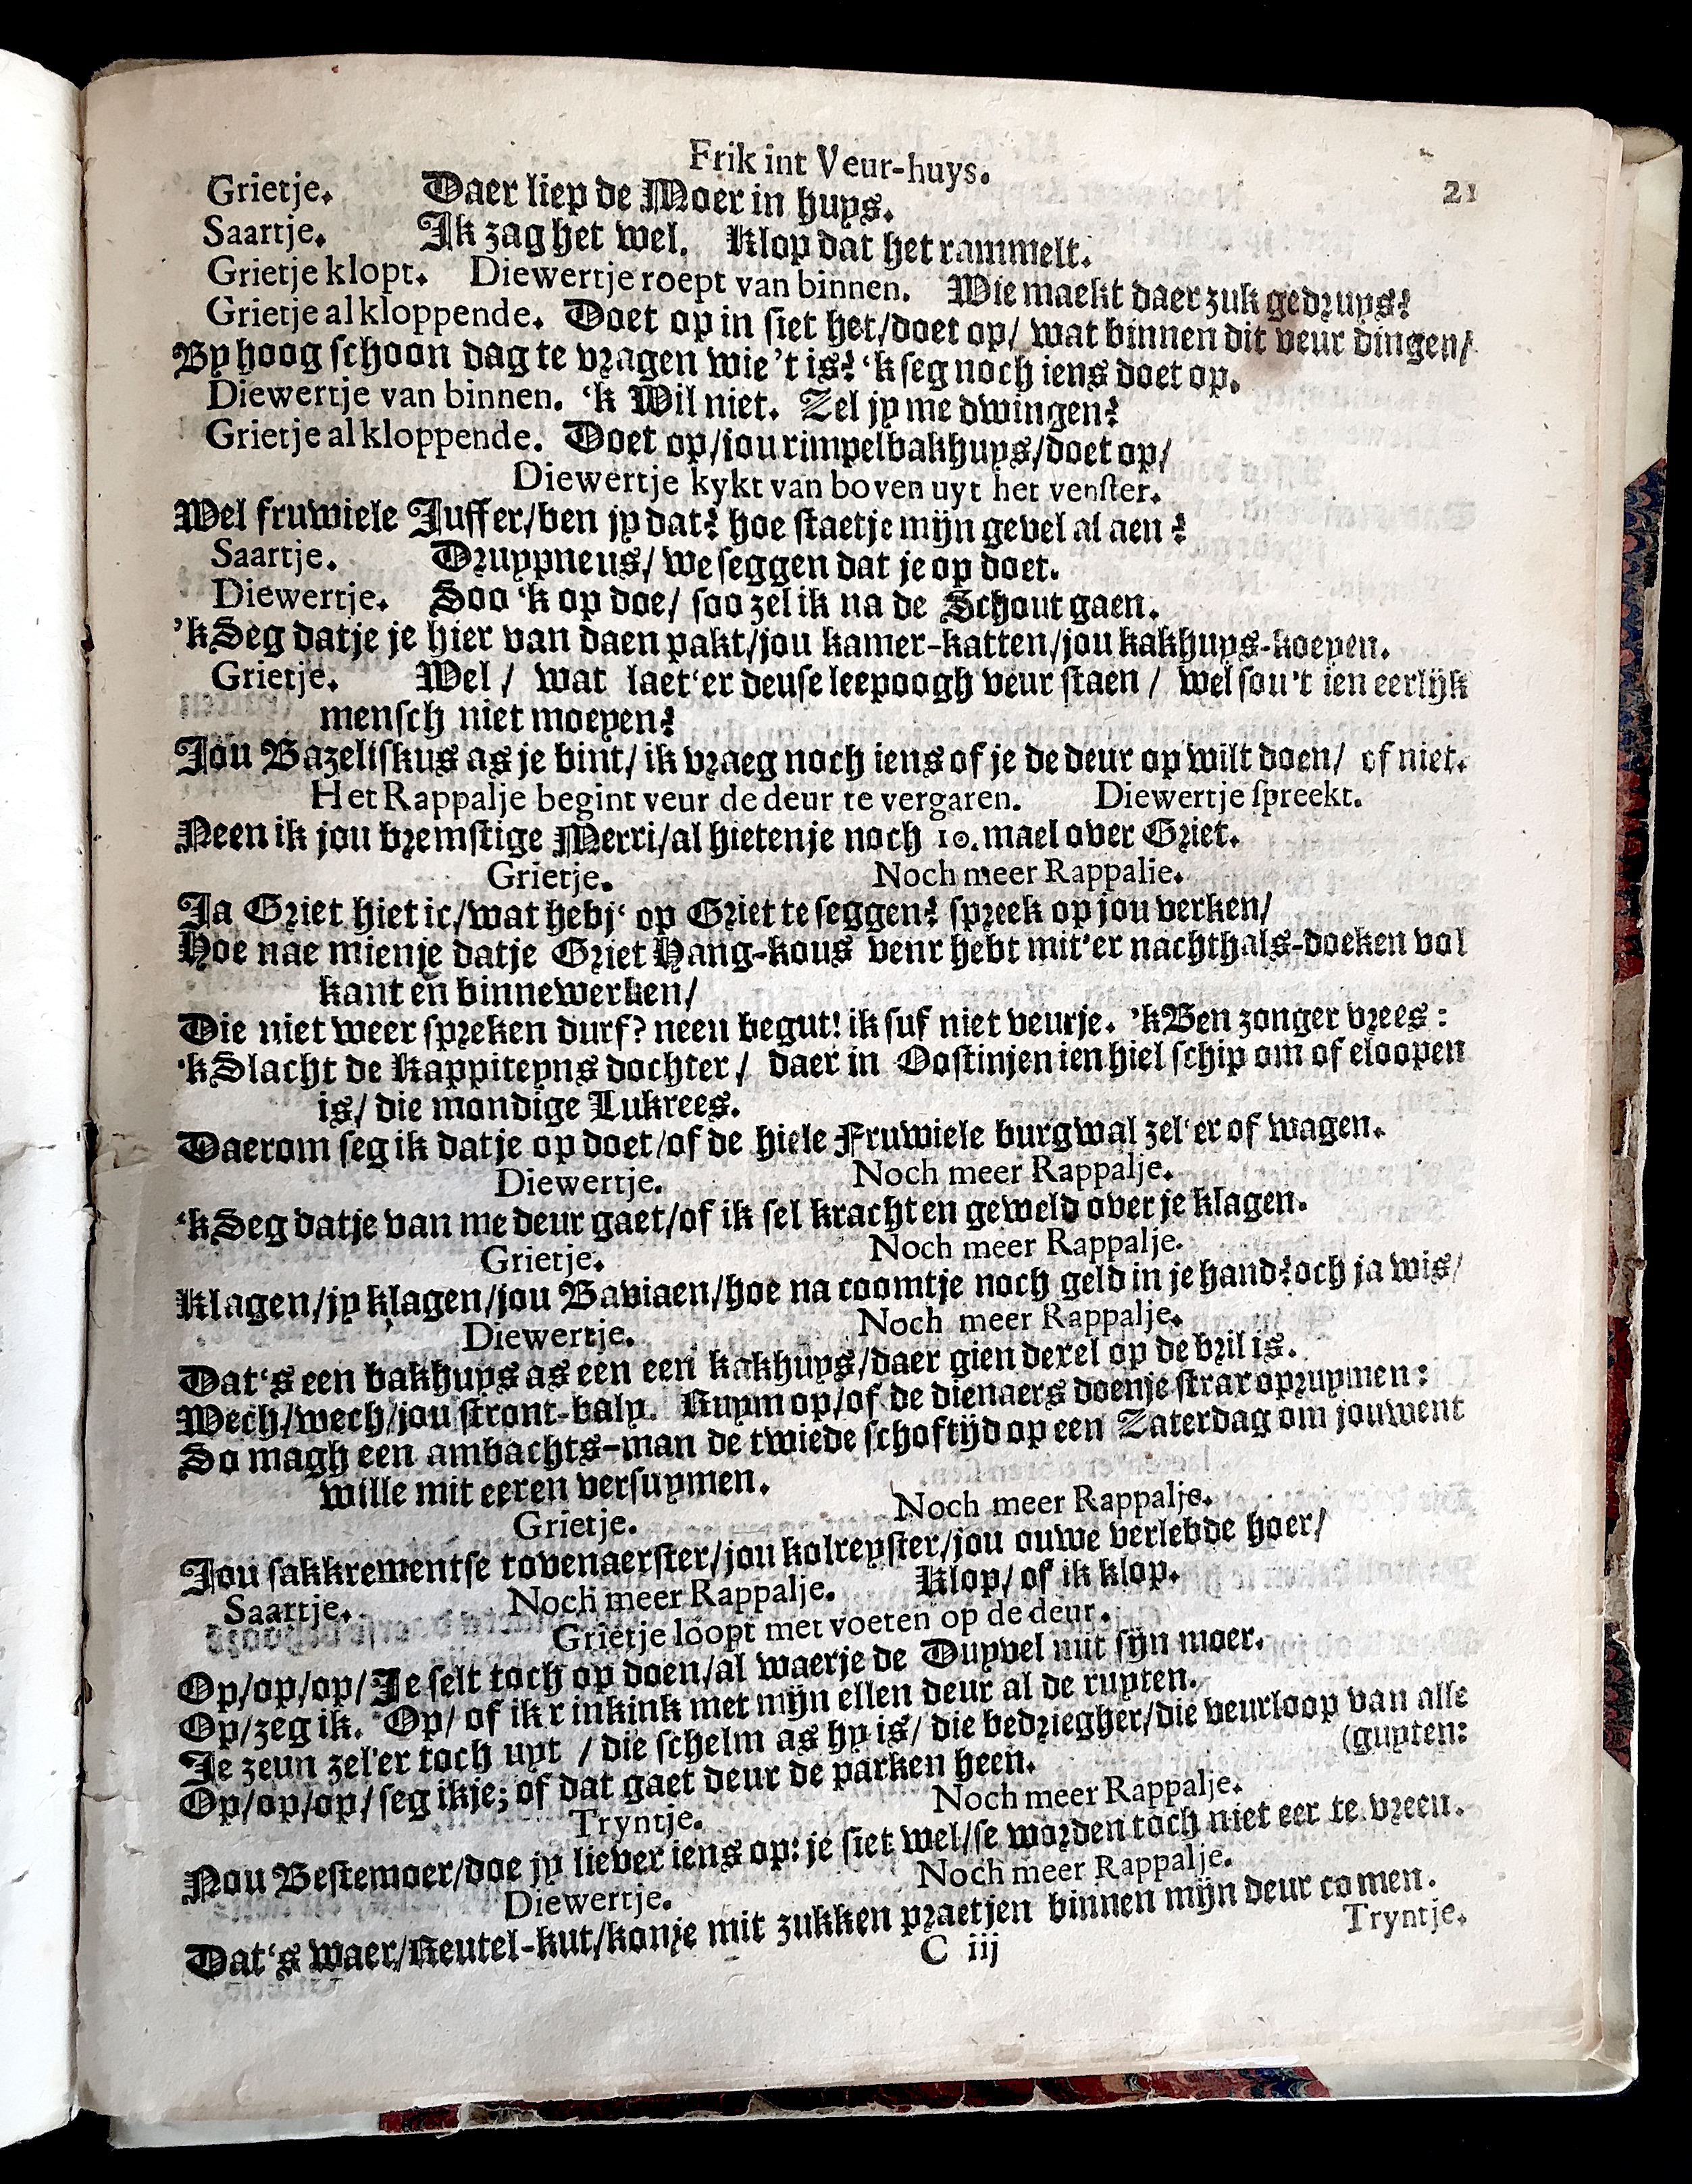 Frik int Veur-huys. 21
Grietje. Daer liep de Moer in huys.
Saartje. Ik zag het wel. Klop dat het rammelt.
Grietje klopt. Diewertje roept van binnen. Wie maekt daer zuk gedruys?
Grietje al kloppende. Doet op in siet het/doet op/ wat binnen dit veur dingen/
By hoog schoon dag te vragen wie 't is? 'k seg noch iens doet op.
Diewertje van binnen. 'k Wil niet. Zel jy me dwingen?
Grietje al kloppende. Doet op/jou rimpelbakhuys/doet op/
Diewertje kykt van boven uyt het venster.
Wel fruwiele Juffer/ben jy dat? hoe staetje mijn gevel al aen?
Saartje. Druypneus/ we seggen dat je op doet.
Diewertje. Soo 'k op doe/ soo zel ik na de Schout gaen.
'k Seg datje je hier van daen pakt/jou kamer-katten/jou kakhuys-koeyen.
Grietje. Wel/ wat laet'er deuse leepoogh veur staen/ wel sou't ien eerlijk
mensch niet moeyen?
Jou Bazeliskus as je bint/ ik vraeg noch iens of je de deur op wilt doen/ of niet.
Het Rappalje begint veur de deur te vergaren. Diewertje spreekt.
Neen ik jou bremstige Merri/al hietenje noch 10. mael over Griet.
Grietje. Noch meer Rappalie.
Ja Griet hiet ic/wat hebj' op Griet te seggen? spreek op jou verken/
Hoe nae mienje datje Griet Hang-kous veur hebt mit'er nachthals-doeken vol
kant en̄ binnewerken/
Die niet weer spreken durf? neen begut! ik suf niet veurje. 'k Ben zonger vrees:
'k Slacht de Kappiteyns dochter/ daer in Oostinjen ien hiel schip om of eloopen
is/ die mondige Lukrees.
Daerom seg ik datje op doet/of de hiele Fruwiele burgwal zel'er of wagen.
Diewertje. Noch meer Rappalje.
'k Seg datje van me deur gaet/of ik sel kracht en geweld over je klagen.
Grietje. Noch meer Rappalje.
Klagen/jy klagen/jou Baviaen/hoe na coomtje noch geld in je hand? och ja wis/
Diewertje. Noch meer Rappalje.
Dat's een bakhuys as een een kakhuys/daer gien dexel op de bril is.
Wech/wech/jou stront-baly. Ruym op/of de dienaers doenje strax opruymen:
So magh een ambachts-man de twiede schoftijd op een Zaterdag om jouwent
wille mit eeren versuymen.
Grietje. Noch meer Rappalje.
Jou sakkrementse tovenaerster/jou kolreyster/jou ouwe verlebde hoer/
Saartje. Noch meer Rappalje. Klop/ of ik klop.
Grietje loopt met voeten op de deur.
Op/op/op/Je selt toch op doen/al waerje de Duyvel mit sijn moer.
Op/zeg ik. Op/ of ik r inkink met mijn ellen deur al de ruyten.
Je zeun zel'er toch uyt / die schelm as hy is/ die bedriegher/die veurloop van alle
(guyten:
Op/op/op/ seg ikje; of dat gaet deur de parken heen.
Tryntje. Noch meer Rappalje.
Nou Bestemoer/doe jy liever iens op: je siet wel/se worden toch niet eer te vreen.
Diewertje. Noch meer Rappalje.
Dat's waer/Keutel-kut/konje mit zukken praetjen binnen mijn deur comen.
C iij Tryntje.